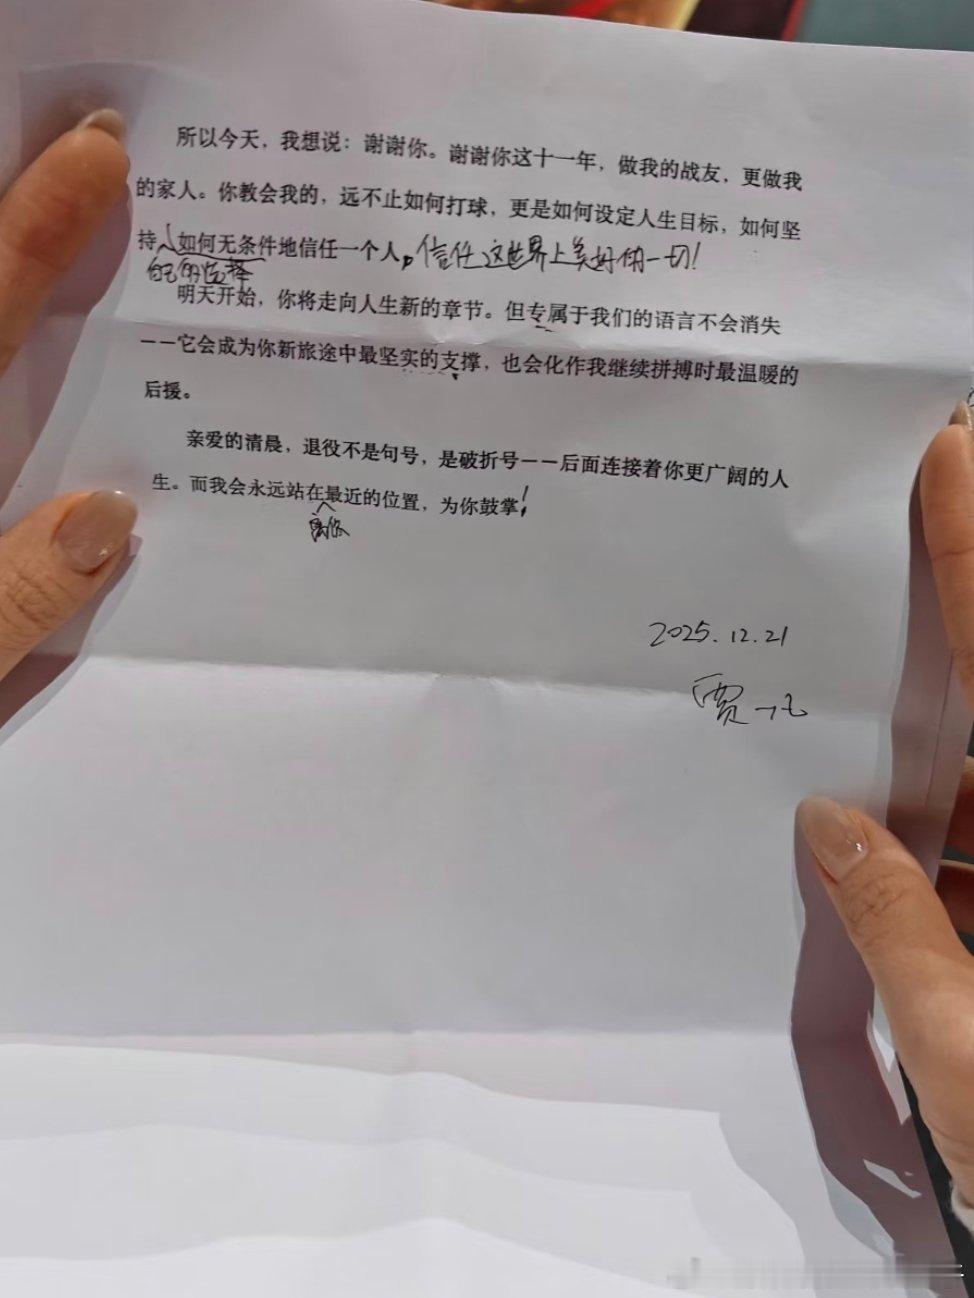 所以今天，我想说：谢谢你。谢谢你这十一年，做我的战友，更做我
的家人。你教会我的，远不止如何打球，更是如何设定人生目标，如何坚
持自己的选择，如何无条件地信任一个人，信任这世界上美好的一切！
明天开始，你将走向人生新的章节。但专属于我们的语言不会消失
——它会成为你新旅途中最坚实的支撑，也会化作我继续拼搏时最温暖的
后援。
亲爱的清晨，退役不是句号，是破折号——后面连接着你更广阔的人
生。而我会永远站在离你最近的位置，为你鼓掌！
2025.12.21
贾一凡